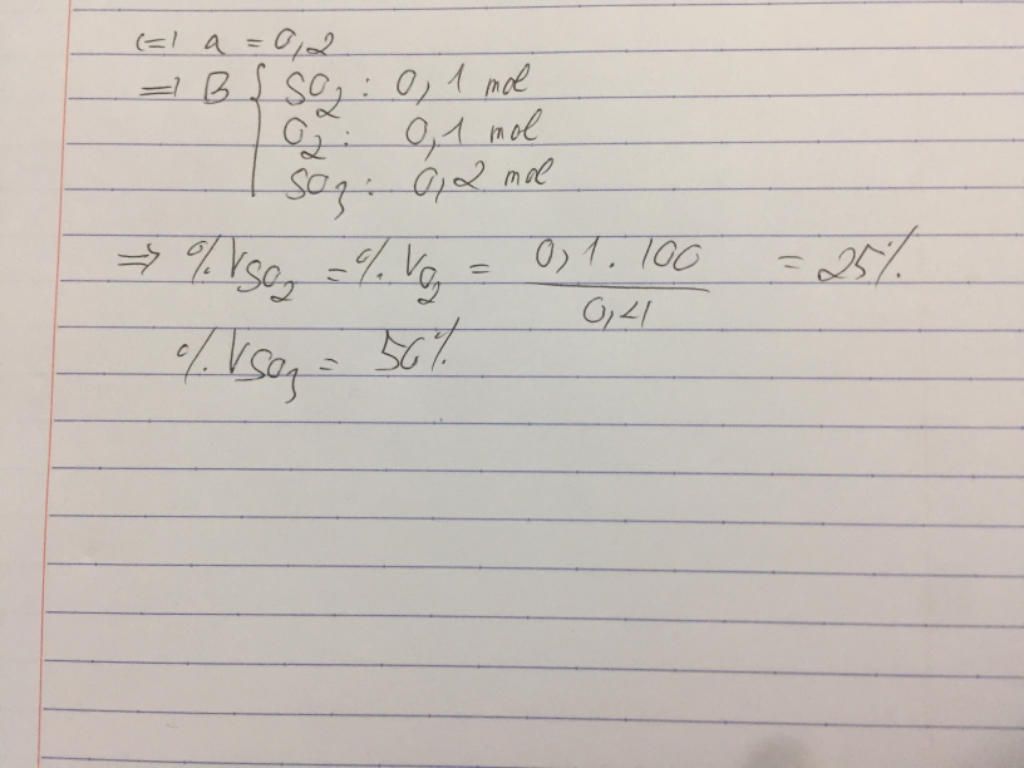 <=> a = 0,2
=> B { SO2 : 0,1 mol
O2 : 0,1 mol
SO3 : 0,2 mol
=> % VSO2 = % VO2 = 0,1 . 100 / 0,4 = 25%
% VSO3 = 50%